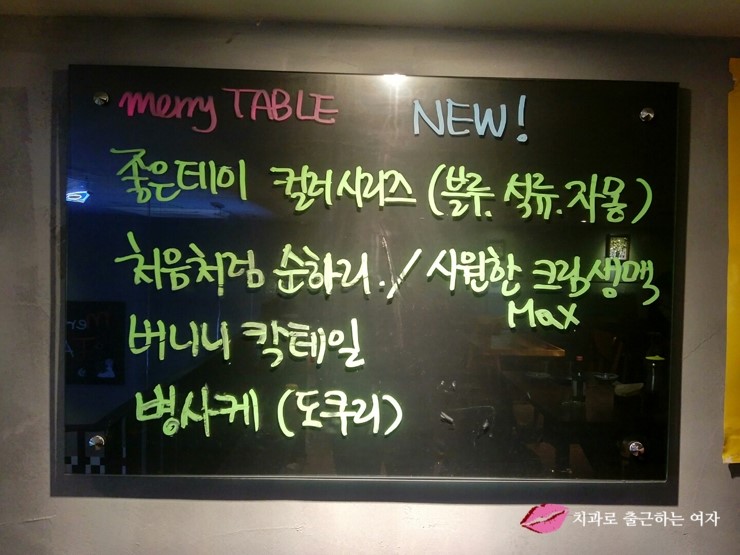 merry TABLE NEW!
좋은데이 컬러시리즈 (블루. 석류. 자몽)
처음처럼 순하리. / 시원한 크림생맥
Max
버니니 칵테일
병사케 (도쿠리)
치과로 출근하는 여자